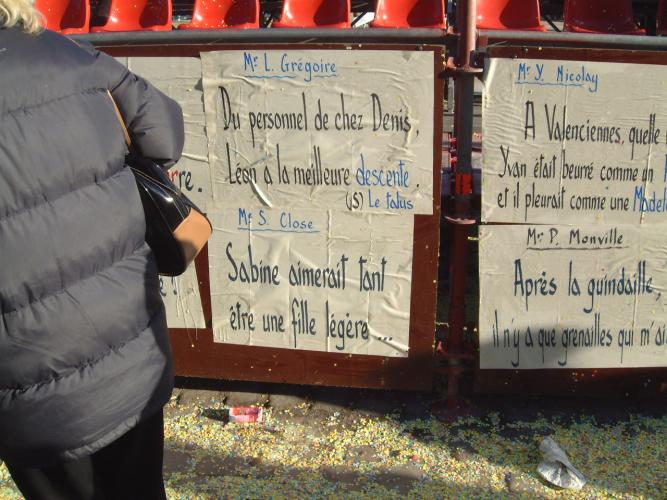 rre.
e !
Mr L. Grégoire
Du personnel de chez Denis,
Léon a la meilleure descente.
(JS) Le tatus
Mr S. Close
Sabine aimerait tant
être une fille légère...
Mr Y. Nicolay
A Valenciennes, quelle
Yvan était beurré comme un
et il pleurait comme une Madel
Mr P. Monville
Après la guindaille,
il n'y a que grenailles qui m'ai